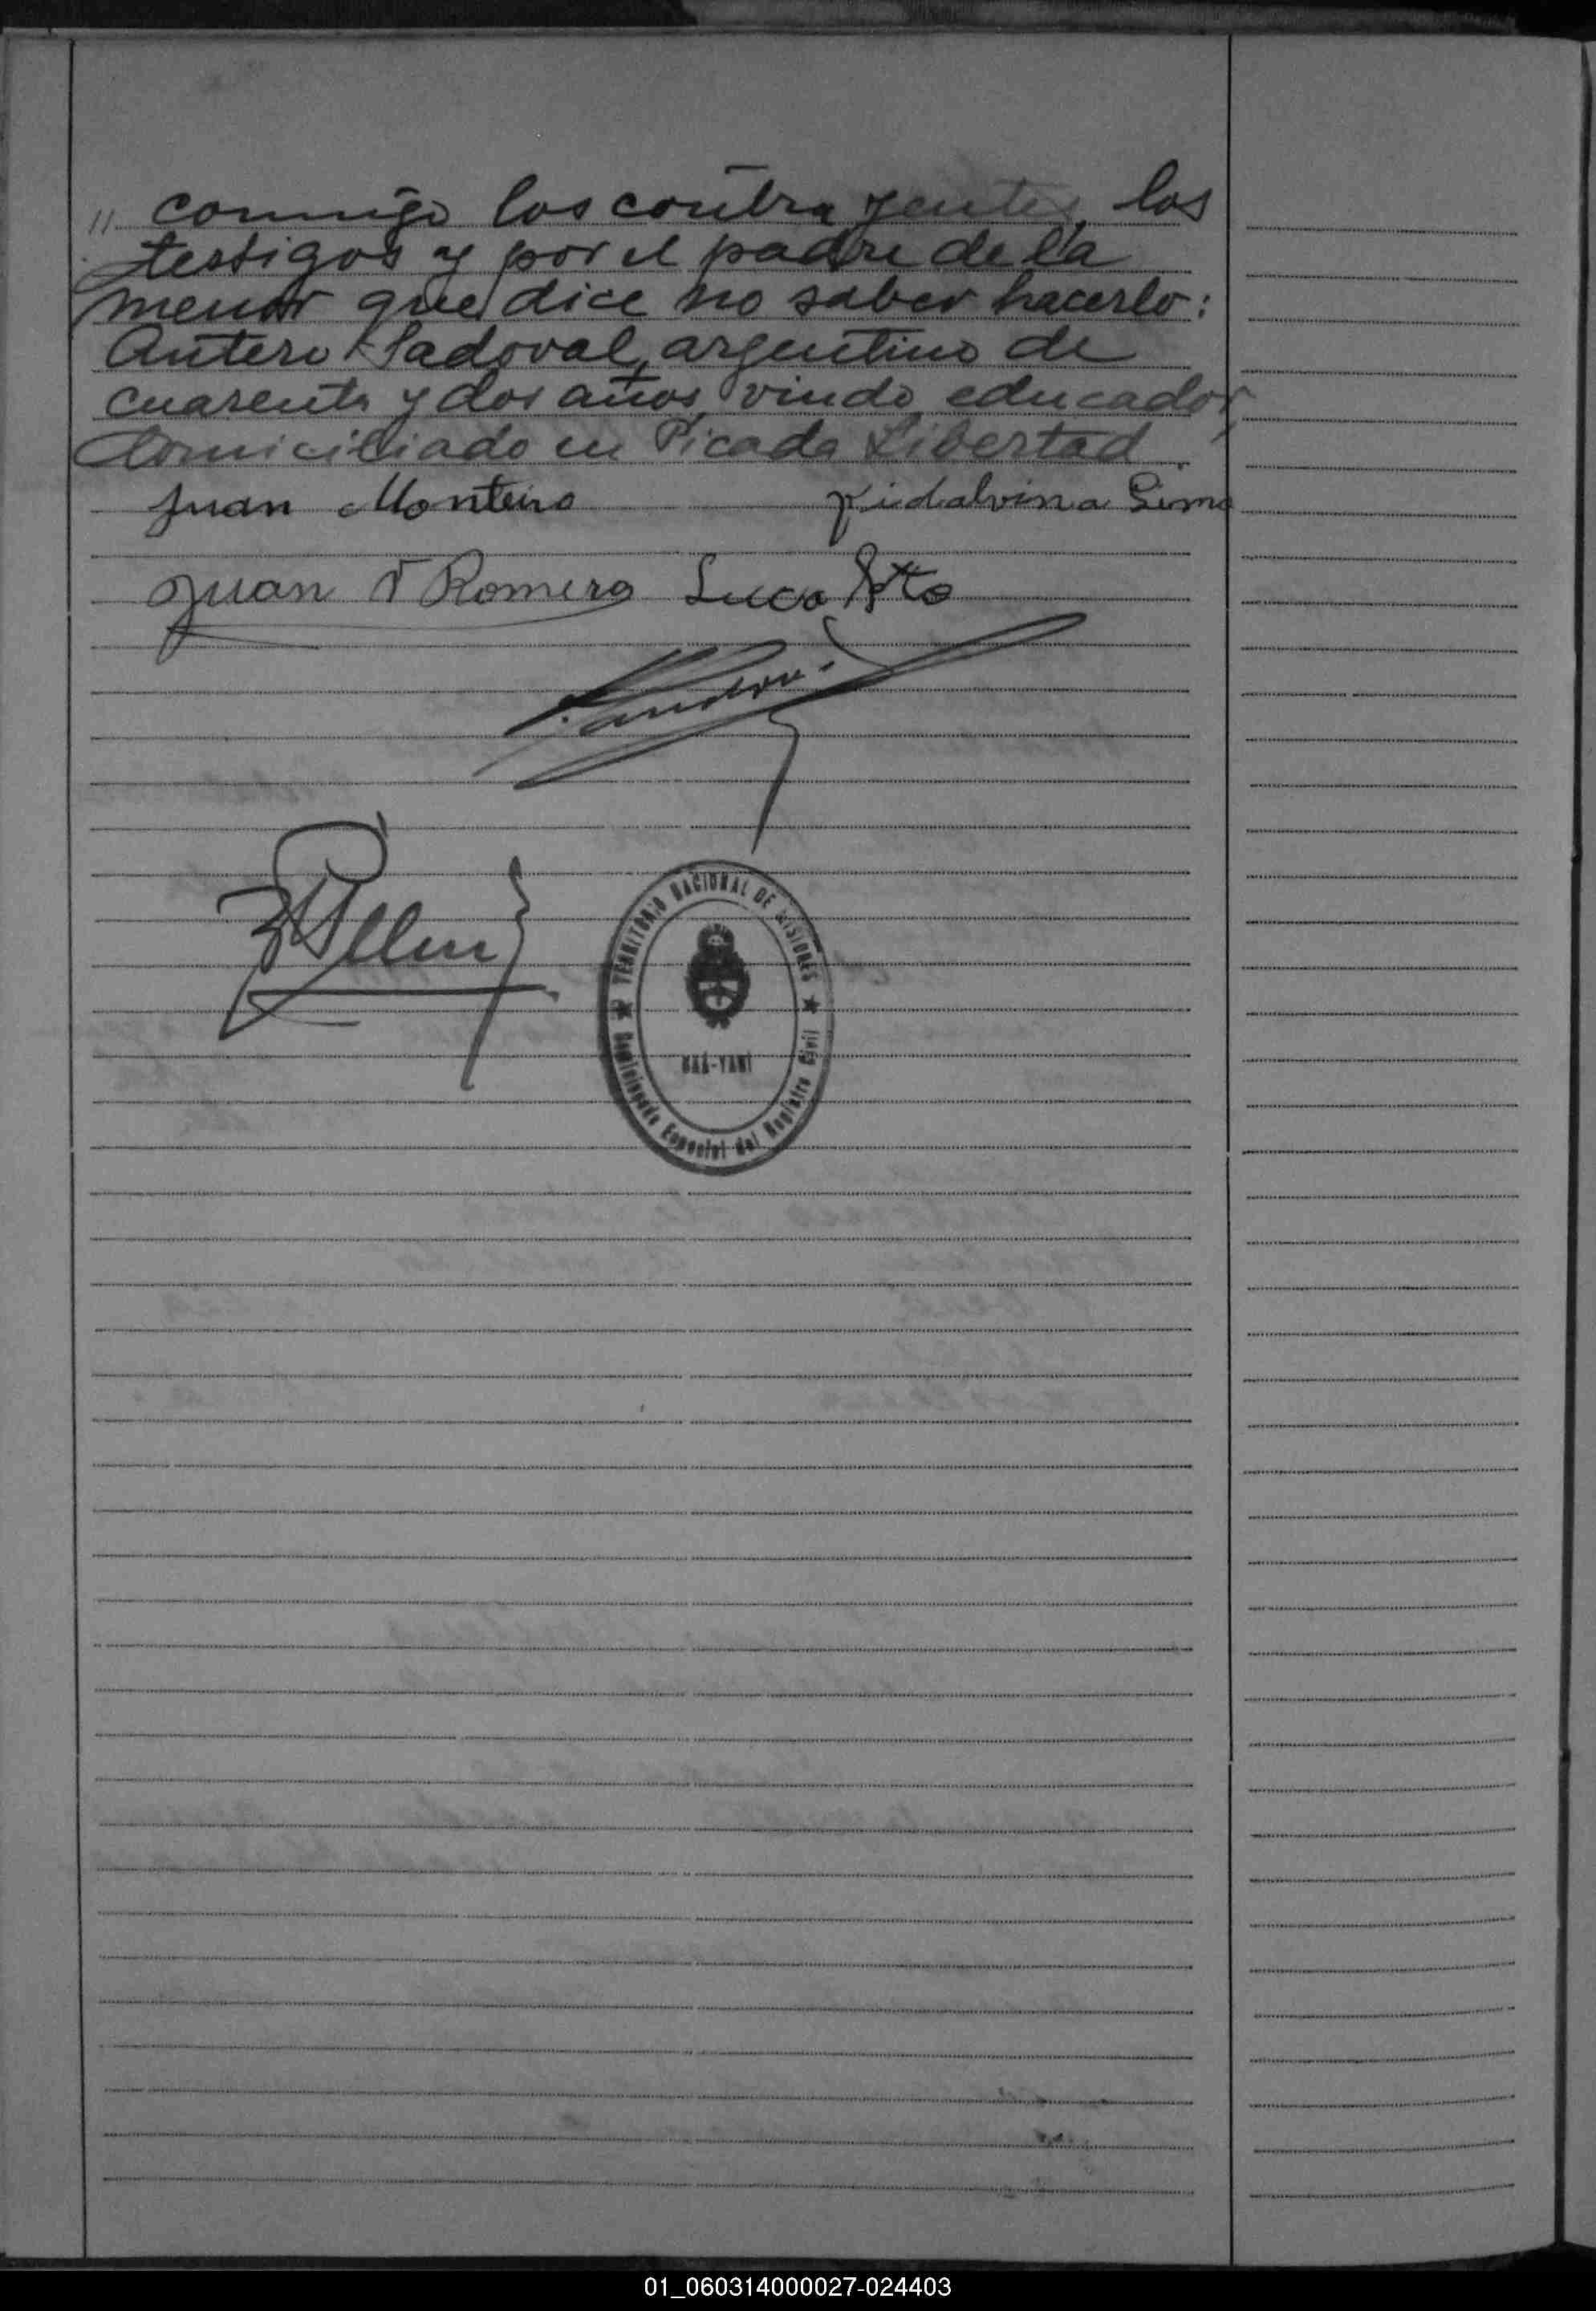 " conmigo los contrayentes, los
testigos y por el padre de la
menor que dice no saber hacerlo:
Antero Sadoval, argentino de
cuarenta y dos años, viudo, educador,
domiciliado en Picada Libertad.
Juan Monteiro Fidalvina Lima
Juan V Romero Luca
TERRITORIO NACIONAL DE MISIONES
CAÁ-YARÍ
Especial del Registro Civil
01_060314000027-024403